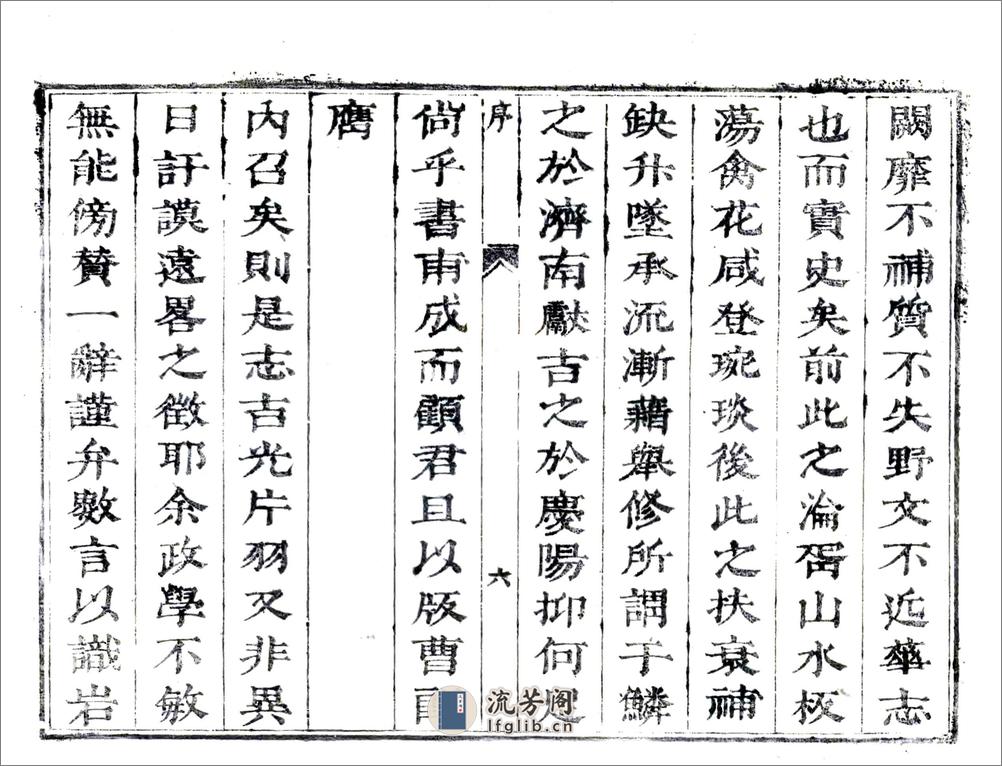 闕靡不補質不失野文不近華志
也而實史矣前此之淪胥山水板
蕩禽花咸登琬琰後此之扶衰補
缺升墜承流漸藉舉修所謂于鱗
之於濟南獻吉之於慶陽抑何足
序 六
尙乎書甫成而顧君且以版曹
膺
內召矣則是志吉光片羽又非異
日訏謨遠畧之徵耶余政學不敏
無能傍贊一辭謹弁數言以識岩
流芳阁
lfglib.cn